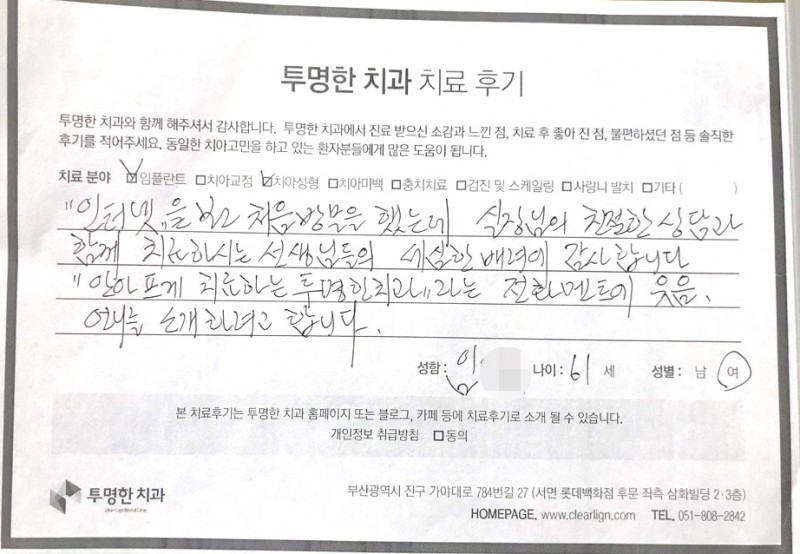 투명한 치과 치료 후기
투명한 치과와 함께 해주셔서 감사합니다. 투명한 치과에서 진료 받으신 소감과 느낀 점, 치료 후 좋아 진 점, 불편하셨던 점 등 솔직한
후기를 적어주세요. 동일한 치아고민을 하고 있는 환자분들에게 많은 도움이 됩니다.
치료 분야 ☑임플란트 □치아교정 ☑치아성형 □치아미백 □충치치료 □검진 및 스케일링 □사랑니 발치 □기타 ( )
"인터넷"을 보고 처음방문을 했는데 실장님의 친절한 상담과
함께 치료하시는 선생님들의 세심한 배려에 감사합니다
"안아프게 치료하는 투명한치과"라는 전화멘트에 웃음.
언니를 소개하려고 합니다.
성함: 임 나이: 61 세 성별: 남 여
본 치료후기는 투명한 치과 홈페이지 또는 블로그, 카페 등에 치료후기로 소개 될 수 있습니다.
개인정보 취급방침 □동의
투명한 치과
부산광역시 진구 가야대로 784번길 27 (서면 롯데백화점 후문 좌측 삼화빌딩 2·3층)
HOMEPAGE. www.clearlign.com TEL. 051-808-2842